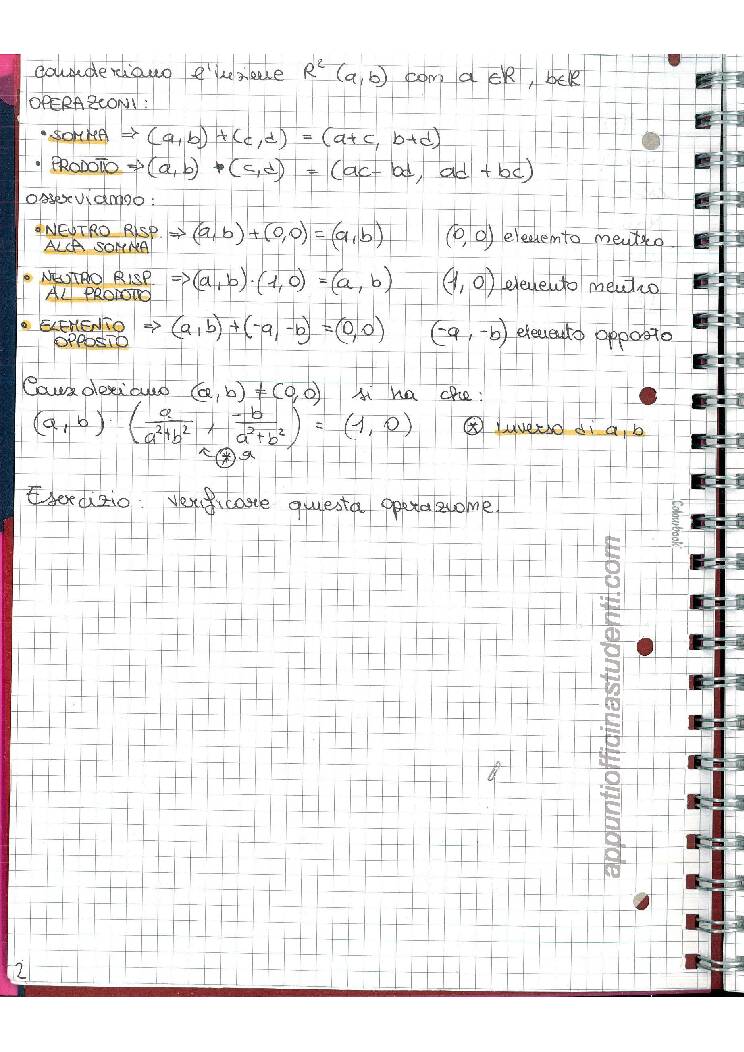 Consideriamo l'insieme R² (a,b) com a ∈R , b∈R
OPERAZIONI:
• SOMMA ⇒ (a,b) + (c,d) = (a+c, b+d)
• PRODOTTO ⇒ (a,b) • (c,d) = (ac-bd, ad+bc)
osserviamo:
• NEUTRO RISP. ALLA SOMMA ⇒ (a,b)+(0,0)=(a,b) (0,0) elemento neutro
• NEUTRO RISP. AL PRODOTTO ⇒ (a,b)·(1,0)=(a,b) (1,0) elemento neutro
• ELEMENTO OPPOSTO ⇒ (a,b)+(-a,-b)=(0,0) (-a,-b) elemento opposto
Consideriamo (a,b) ≠ (0,0) si ha che:
(a,b) · (a/a²+b² , -b/a²+b²) = (1,0) ⊛ inverso di a,b
⊛
Esercizio: verificare questa operazione.
Colourbook
appuntiofficinastudenti.com
2